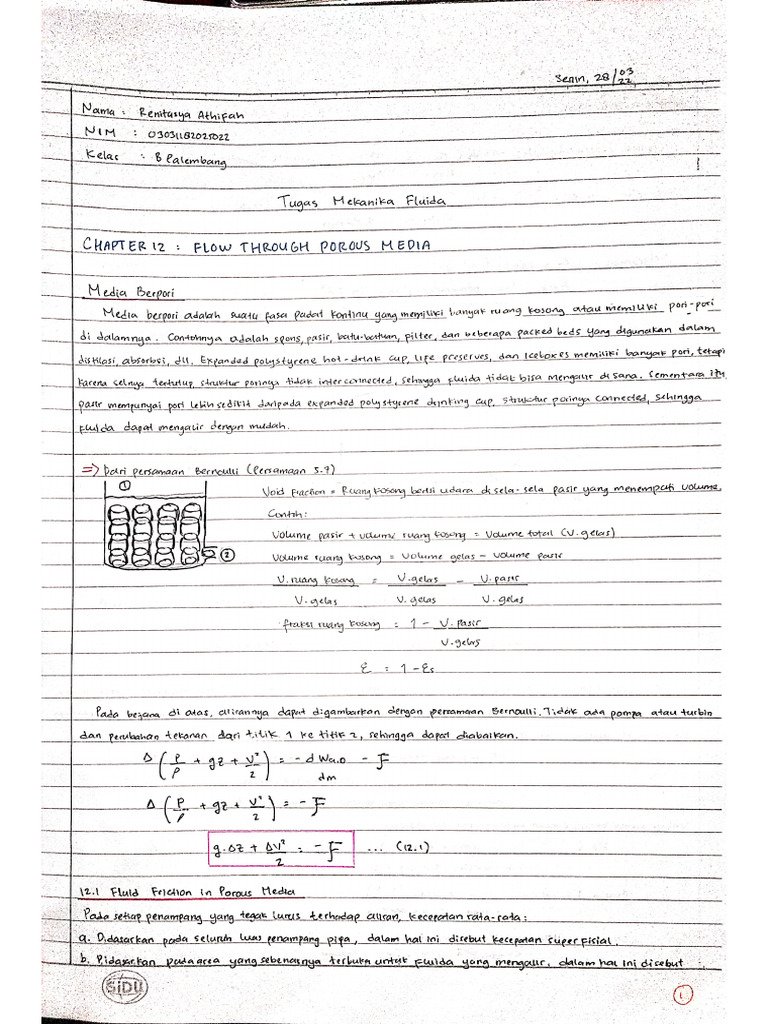 Senin, 28/03/22
Nama : Renitasya Athifah
NIM : 03031182025022
Kelas : B Palembang
Tugas Mekanika Fluida
CHAPTER 12 : FLOW THROUGH POROUS MEDIA
Media Berpori
Media berpori adalah suatu fasa padat kontinu yang memiliki banyak ruang kosong atau memiliki pori-pori
di dalamnya. Contohnya adalah spons, pasir, batu-batuan, filter, dan beberapa packed beds yang digunakan dalam
distilasi, absorbsi, dll. Expanded polystyrene hot-drink cup, life preserves, dan Iceboxes memiliki banyak pori, tetapi
karena selnya tertutup, struktur porinya tidak interconnected, sehingga fluida tidak bisa mengalir disana. Sementara itu
pasir mempunyai pori lebih sedikit daripada expanded polystyrene drinking cup, struktur porinya connected, sehingga
fluida dapat mengalir dengan mudah.
=> Dari persamaan Bernoulli (Persamaan 5.7)
1
Void Fraction = Ruang kosong berisi udara di sela-sela pasir yang menempati volume.
Contoh:
Volume pasir + volume ruang kosong = Volume total (V. gelas)
2
Volume ruang kosong = Volume gelas - Volume pasir
V. ruang kosong = V. gelas - V. pasir
V. gelas V. gelas V. gelas
fraksi ruang kosong = 1 - V. pasir
V. gelas
ε = 1 - εs
Pada bejana di atas, alirannya dapat digambarkan dengan persamaan Bernoulli. Tidak ada pompa atau turbin
dan perubahan tekanan dari titik 1 ke titik 2, sehingga dapat diabaikan.
Δ (P/ρ + gz + V²/2) = - dWa.o/dm - F
Δ (P/ρ + gz + V²/2) = - F
g.Δz + ΔV²/2 = - F ... (12.1)
12.1 Fluid Friction in Porous Media
Pada setiap penampang yang tegak lurus terhadap aliran, kecepatan rata-rata :
a. Didasarkan pada seluruh luas penampang pipa, dalam hal ini disebut kecepatan superfisial.
b. Didasarkan pada area yang sebenarnya terbuka untuk fluida yang mengalir, dalam hal ini disebut
SiDU
1